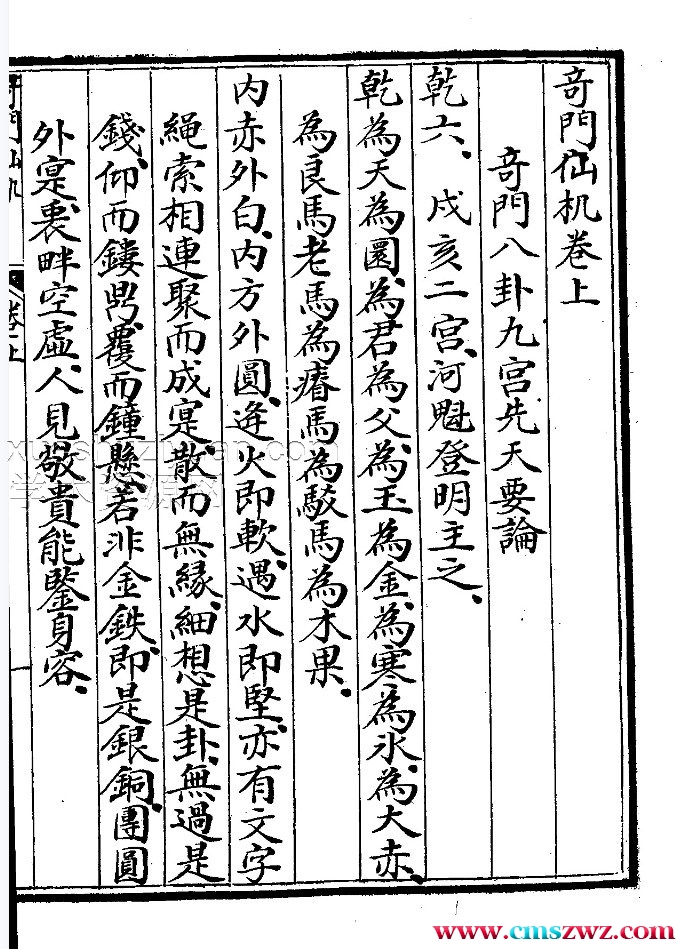 奇門仙机卷上
奇門八卦九宫先天要論
乾六、戍亥二宫、河魁登明主之、
乾為天為圜、為君為父、為玉為金、為寒為氷、為大赤、
為良馬老馬為瘠馬為駁馬為木果、
内赤外白、内方外圓、逢火即軟、遇水即堅、亦有文字
縄索相連、聚而成寔、散而無縁、細想是卦、無過是
錢、仰而鏤鼎、覆而鐘懸、若非金鉄、即是銀銅、團圓
外寔、裏畔空虛、人見敬貴、能鑒身容、
奇門仙机
卷上
www.cmszwz.com